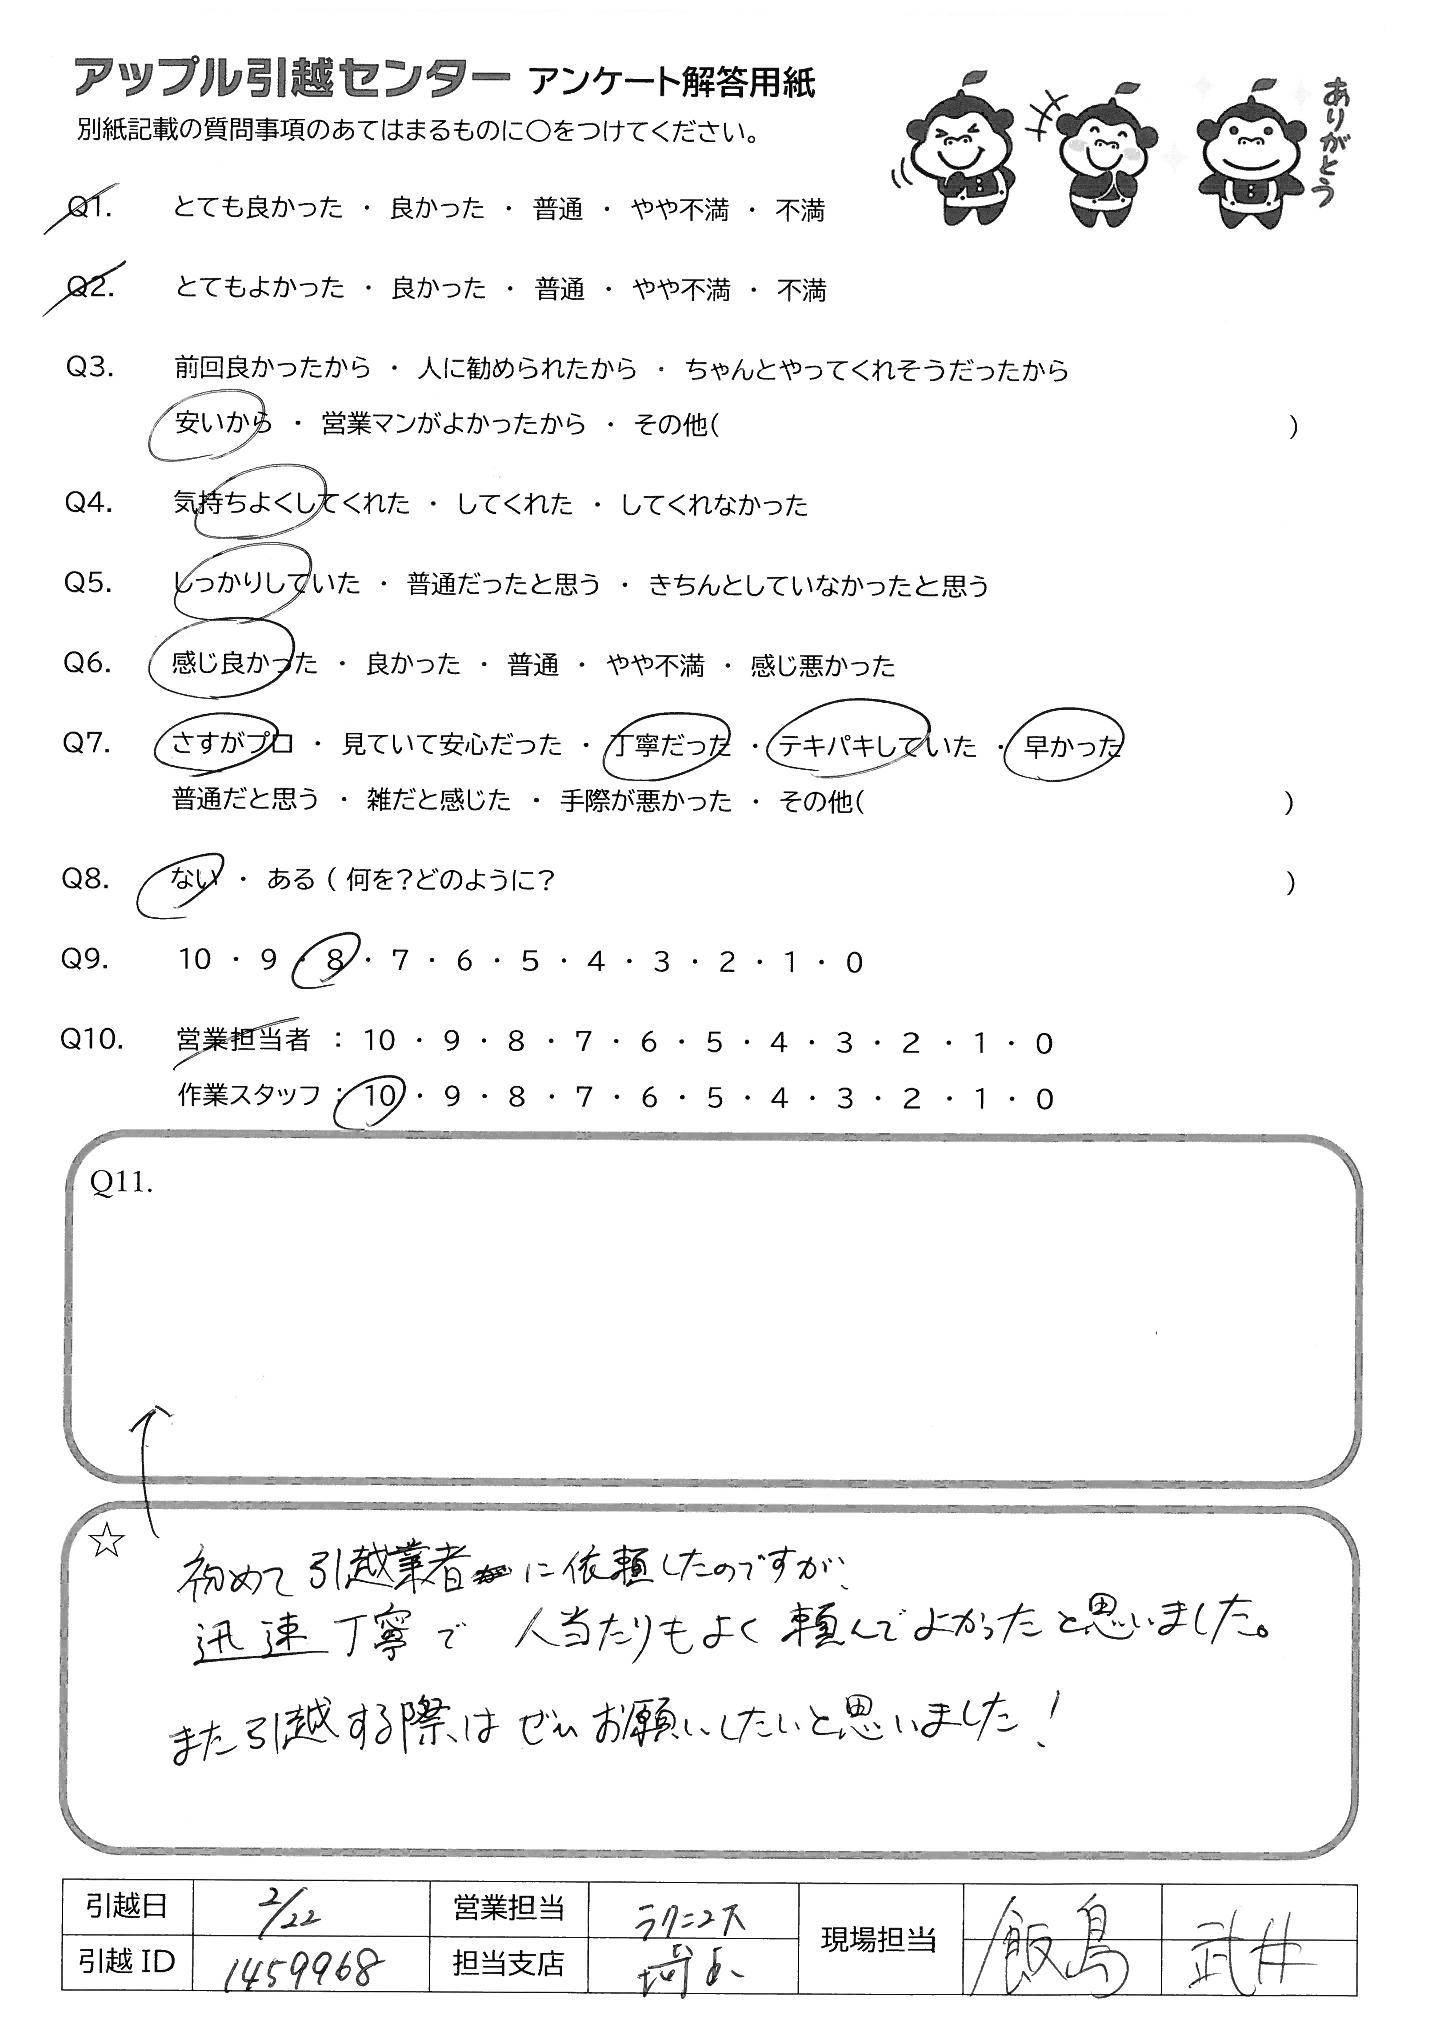 アップル引越センター アンケート解答用紙
別紙記載の質問事項のあてはまるものに○をつけてください。
ありがとう
Q1. とても良かった ・ 良かった ・ 普通 ・ やや不満 ・ 不満
Q2. とてもよかった ・ 良かった ・ 普通 ・ やや不満 ・ 不満
Q3. 前回良かったから ・ 人に勧められたから ・ ちゃんとやってくれそうだったから
安いから ・ 営業マンがよかったから ・ その他( )
Q4. 気持ちよくしてくれた ・ してくれた ・ してくれなかった
Q5. しっかりしていた ・ 普通だったと思う ・ きちんとしていなかったと思う
Q6. 感じ良かった ・ 良かった ・ 普通 ・ やや不満 ・ 感じ悪かった
Q7. さすがプロ ・ 見ていて安心だった ・ 丁寧だった ・ テキパキしていた ・ 早かった
普通だと思う ・ 雑だと感じた ・ 手際が悪かった ・ その他( )
Q8. ない ・ ある ( 何を?どのように? )
Q9. 10 ・ 9 ・ 8 ・ 7 ・ 6 ・ 5 ・ 4 ・ 3 ・ 2 ・ 1 ・ 0
Q10. 営業担当者 : 10 ・ 9 ・ 8 ・ 7 ・ 6 ・ 5 ・ 4 ・ 3 ・ 2 ・ 1 ・ 0
作業スタッフ : 10 ・ 9 ・ 8 ・ 7 ・ 6 ・ 5 ・ 4 ・ 3 ・ 2 ・ 1 ・ 0
Q11.
☆
初めて引越業者に依頼したのですが、
迅速丁寧で 人当たりもよく頼んでよかったと思いました。
また引越する際はぜひお願いしたいと思いました!
引越日 2/22 営業担当 ラクニコス 現場担当 飯島 武井
引越ID 1459968 担当支店 埼玉